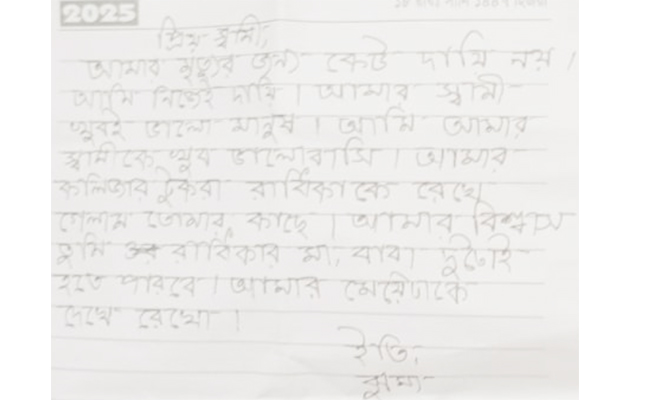 2025
প্রিয় স্বামী,
আমার মৃত্যুর জন্য কেউ দায়ি নয়।
আমি নিজেই দায়ি। আমার স্বামী
খুবই ভালো মানুষ। আমি আমার
স্বামীকে খুব ভালোবাসি। আমার
কলিজার টুকরা রাধিকাকে রেখে
গেলাম তোমার কাছে। আমার বিশ্বাস
তুমি রাধিকার মা, বাবা দুটোই
হতে পারবে। আমার মেয়েটাকে
দেখে রেখো।
ইতি,
ঝুমা